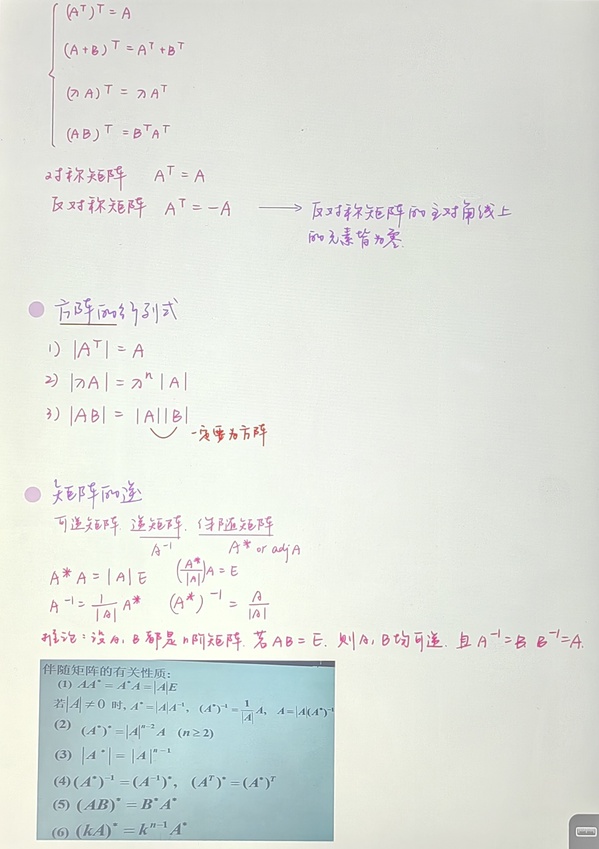 (Aᵀ)ᵀ = A
(A+B)ᵀ = Aᵀ+Bᵀ
(λA)ᵀ = λAᵀ
(AB)ᵀ = BᵀAᵀ
对称矩阵 Aᵀ = A
反对称矩阵 Aᵀ = -A → 反对称矩阵的主对角线上
的元素皆为零.
方阵的行列式
1) |Aᵀ| = A
2) |λA| = λⁿ |A|
3) |AB| = |A||B|
一定要为方阵
矩阵的逆
可逆矩阵. 逆矩阵. 伴随矩阵
A⁻¹ A* or adjA
A*A = |A|E (A*/|A|)A = E
A⁻¹ = 1/|A| A* (A*)⁻¹ = A/|A|
推论: 设A, B都是n阶矩阵. 若AB = E. 则A, B均可逆. 且A⁻¹=B, B⁻¹=A.
伴随矩阵的有关性质:
(1) AA* = A*A = |A|E
若|A| ≠ 0 时, A* = |A|A⁻¹, (A*)⁻¹ = 1/|A| A, A = |A|(A*)⁻¹
(2) (A*)* = |A|ⁿ⁻² A (n ≥ 2)
(3) |A*| = |A|ⁿ⁻¹
(4) (A*)⁻¹ = (A⁻¹)*, (Aᵀ)* = (A*)ᵀ
(5) (AB)* = B*A*
(6) (kA)* = kⁿ⁻¹A*